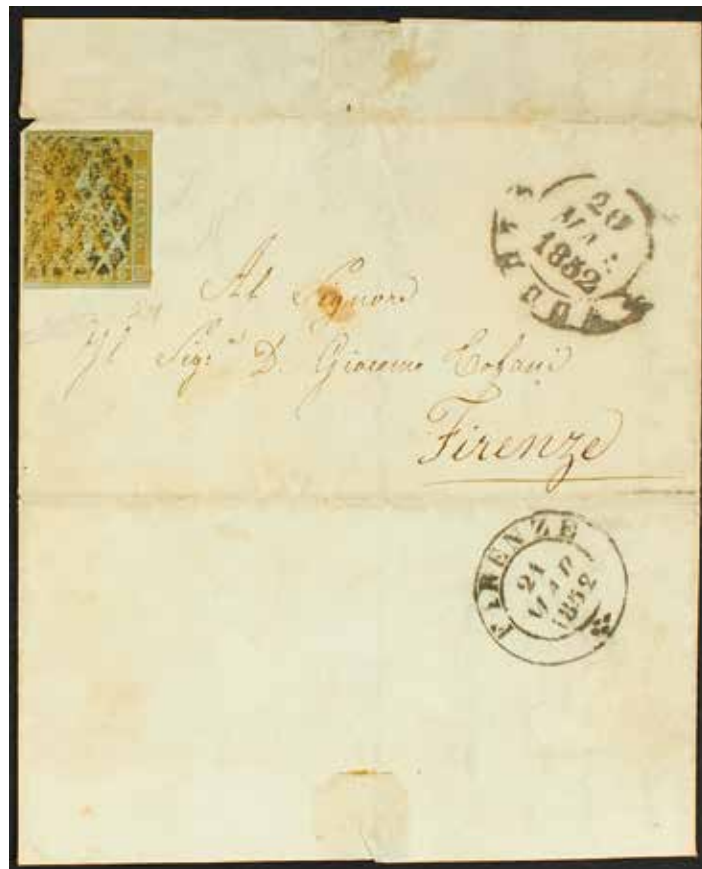 20
MAR
1852
Al Signore
Sig: D. Giacomo Cofani
Firenze
FIRENZE
21
MAR
1852